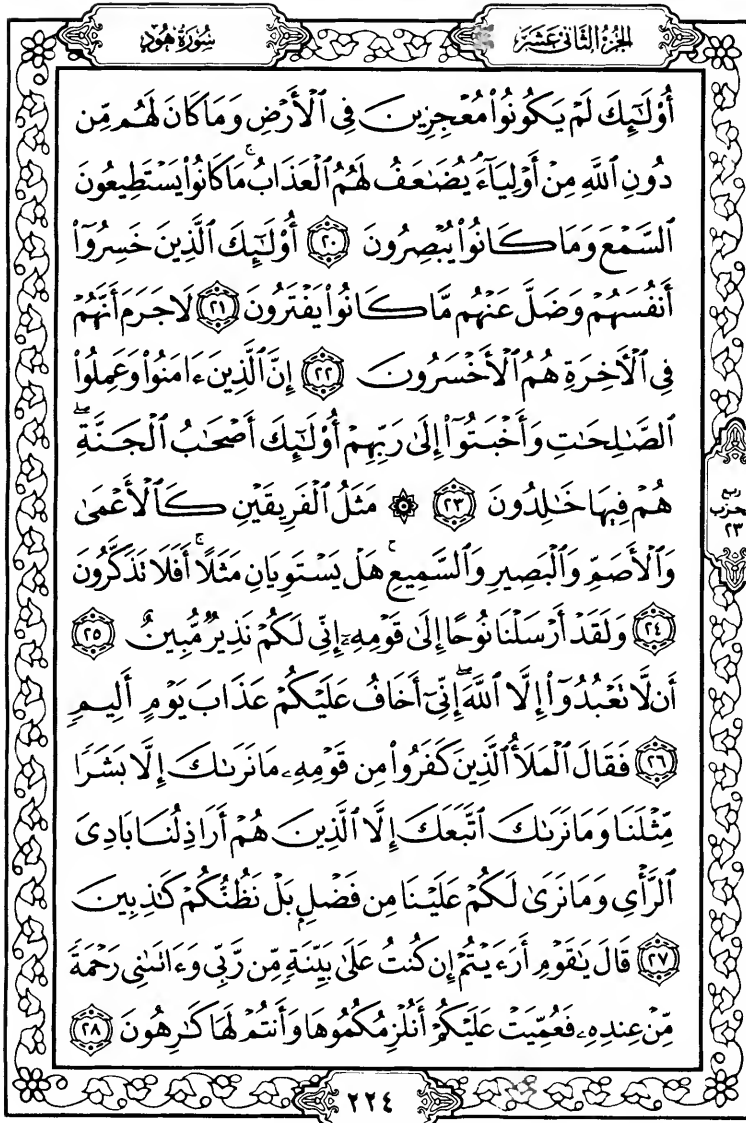 الجزء الثاني عشر
سُورَةُ هُودٍ
أُوْلَٰٓئِكَ لَمْ يَكُونُواْ مُعْجِزِينَ فِي ٱلْأَرْضِ وَمَا كَانَ لَهُم مِّن
دُونِ ٱللَّهِ مِنْ أَوْلِيَآءَۘ يُضَٰعَفُ لَهُمُ ٱلْعَذَابُۚ مَا كَانُواْ يَسْتَطِيعُونَ
ٱلسَّمْعَ وَمَا كَانُواْ يُبْصِرُونَ ٢٠ أُوْلَٰٓئِكَ ٱلَّذِينَ خَسِرُوٓاْ
أَنفُسَهُمْ وَضَلَّ عَنْهُم مَّا كَانُواْ يَفْتَرُونَ ٢١ لَا جَرَمَ أَنَّهُمْ
فِي ٱلْأٓخِرَةِ هُمُ ٱلْأَخْسَرُونَ ٢٢ إِنَّ ٱلَّذِينَ ءَامَنُواْ وَعَمِلُواْ
ٱلصَّٰلِحَٰتِ وَأَخْبَتُوٓاْ إِلَىٰ رَبِّهِمْ أُوْلَٰٓئِكَ أَصْحَٰبُ ٱلْجَنَّةِۖ
هُمْ فِيهَا خَٰلِدُونَ ٢٣ ۞ مَثَلُ ٱلْفَرِيقَيْنِ كَٱلْأَعْمَىٰ
وَٱلْأَصَمِّ وَٱلْبَصِيرِ وَٱلسَّمِيعِۚ هَلْ يَسْتَوِيَانِ مَثَلًاۚ أَفَلَا تَذَكَّرُونَ
٢٤ وَلَقَدْ أَرْسَلْنَا نُوحًا إِلَىٰ قَوْمِهِۦٓ إِنِّي لَكُمْ نَذِيرٌ مُّبِينٌ ٢٥
أَن لَّا تَعْبُدُوٓاْ إِلَّا ٱللَّهَۖ إِنِّيٓ أَخَافُ عَلَيْكُمْ عَذَابَ يَوْمٍ أَلِيمٍ
٢٦ فَقَالَ ٱلْمَلَأُ ٱلَّذِينَ كَفَرُواْ مِن قَوْمِهِۦ مَا نَرَىٰكَ إِلَّا بَشَرًا
مِّثْلَنَا وَمَا نَرَىٰكَ ٱتَّبَعَكَ إِلَّا ٱلَّذِينَ هُمْ أَرَاذِلُنَا بَادِيَ
ٱلرَّأْيِ وَمَا نَرَىٰ لَكُمْ عَلَيْنَا مِن فَضْلِۭ بَلْ نَظُنُّكُمْ كَٰذِبِينَ
٢٧ قَالَ يَٰقَوْمِ أَرَءَيْتُمْ إِن كُنتُ عَلَىٰ بَيِّنَةٍ مِّن رَّبِّي وَءَاتَىٰنِي رَحْمَةً
مِّنْ عِندِهِۦ فَعُمِّيَتْ عَلَيْكُمْ أَنُلْزِمُكُمُوهَا وَأَنتُمْ لَهَا كَٰرِهُونَ ٢٨
ربع
الحزب
٢٣
٢٢٤